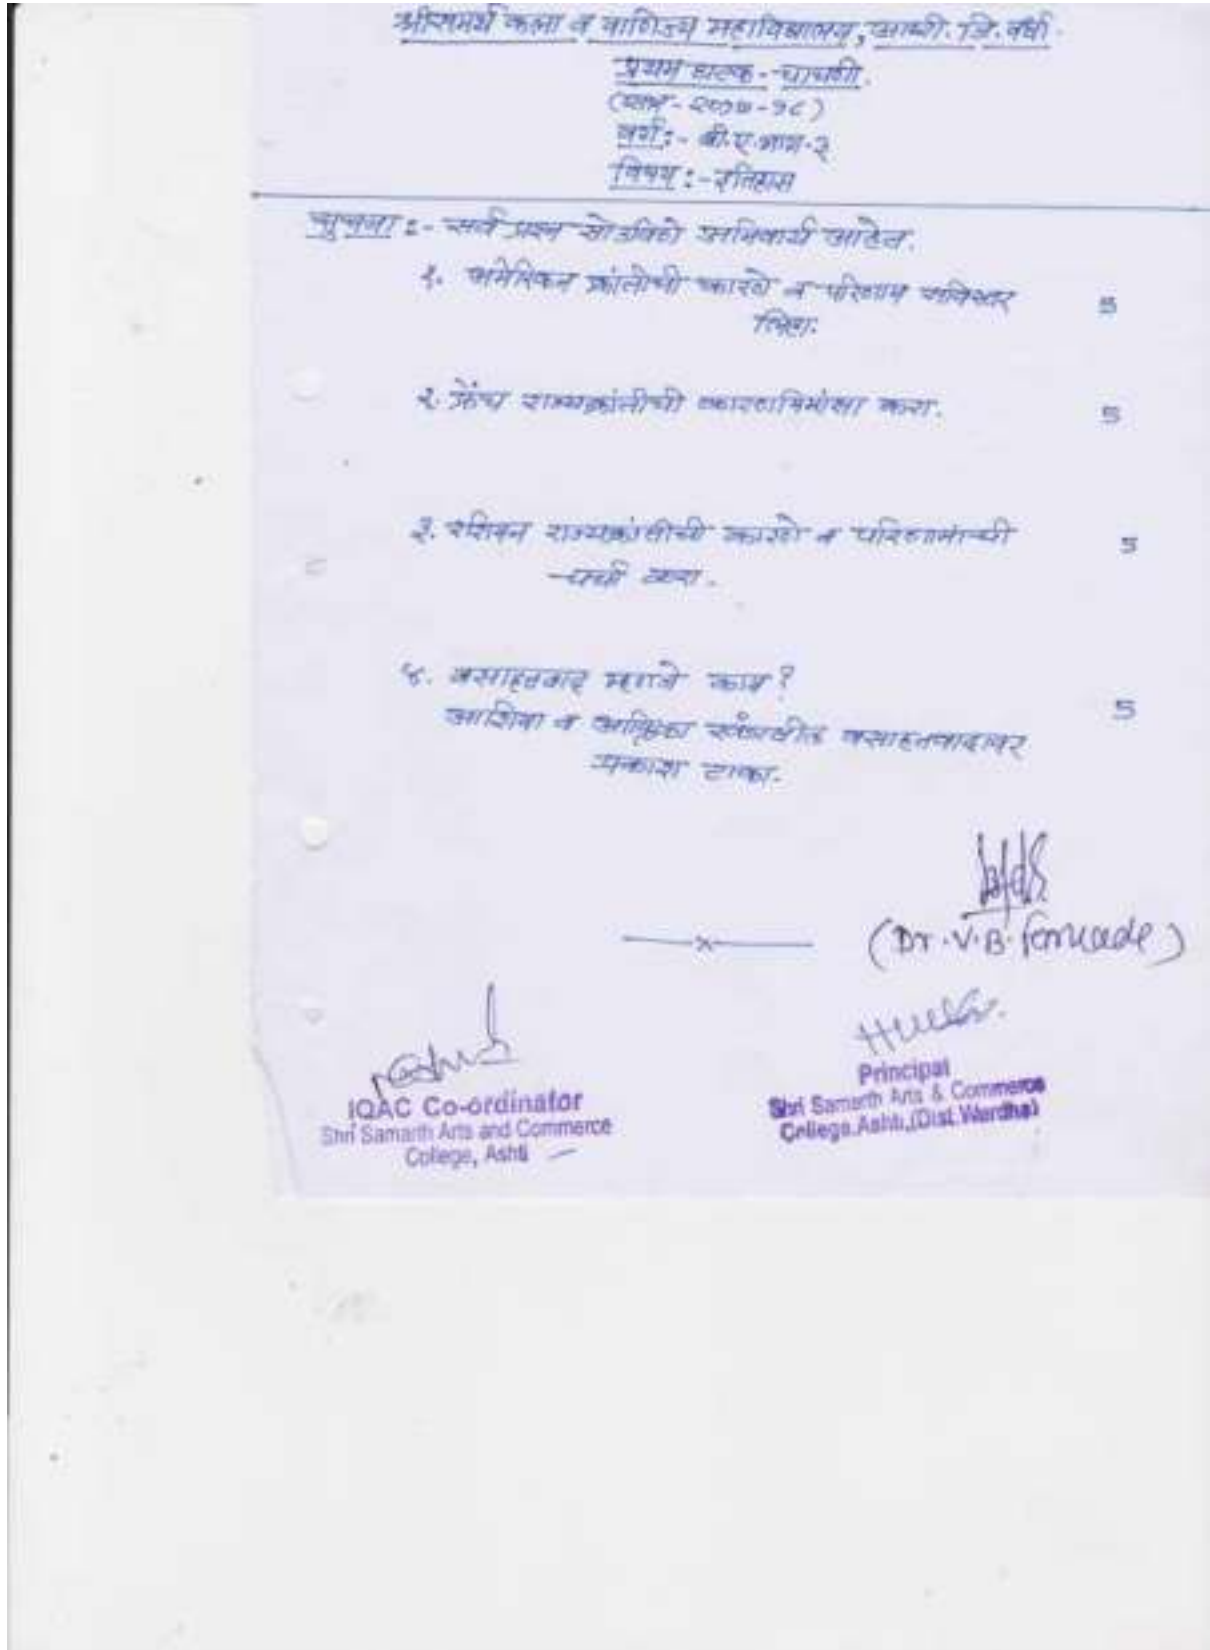 श्रीसमर्थ कला व वाणिज्य महाविद्यालय, आष्टी. जि. वर्धा.
प्रथम घटक - चाचणी.
(सत्र - २०१७ - १८)
वर्ग :- बी.ए.भाग-३
विषय :- इतिहास
सुचना :- सर्व प्रश्न सोडविणे अनिवार्य आहेत.
१. अमेरिकन क्रांतीची कारणे व परिणाम सविस्तर 5
लिहा.
२. फ्रेंच राज्यक्रांतीची कारणमिमांसा करा. 5
३. रशियन राज्यक्रांतीची कारणे व परिणामांची 5
चर्चा करा.
४. वसाहतवाद म्हणजे काय?
आशिया व आफ्रिका खंडातील वसाहतवादावर 5
प्रकाश टाका.
(Dr. V. B.
IQAC Co-ordinator
Shri Samarth Arts and Commerce
College, Ashti
Principal
Shri Samarth Arts & Commerce
College, Ashti, (Dist. Wardha)